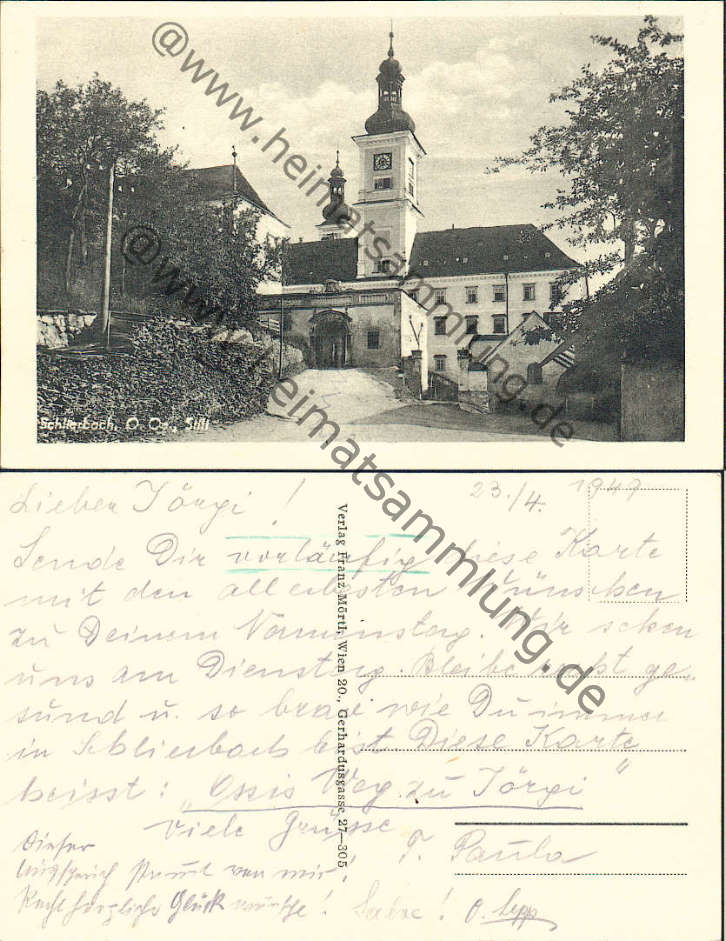 @www.heimatsammlung.de
@www.heimatsammlung.de
Schlierbach, O. Oe., Stift
Lieber Jörgi! 23./4. 1949
Sende Dir vorläufig diese Karte
mit den allerbesten Wünschen
zu Deinem Namenstag. Wir sehen
uns am Dienstag. Bleibe recht ge-
sund u. so brav wie Du immer
in Schlierbach bist. Diese Karte
heisst: "Ossis Weg zu Jörgi"
Viele Grüsse
T. Paula
Dieser
von mir!
Recht herzliche Glück wünsche! O. Sepp
Verlag Franz Mörtl, Wien 20., Gerhardusgasse 27—305